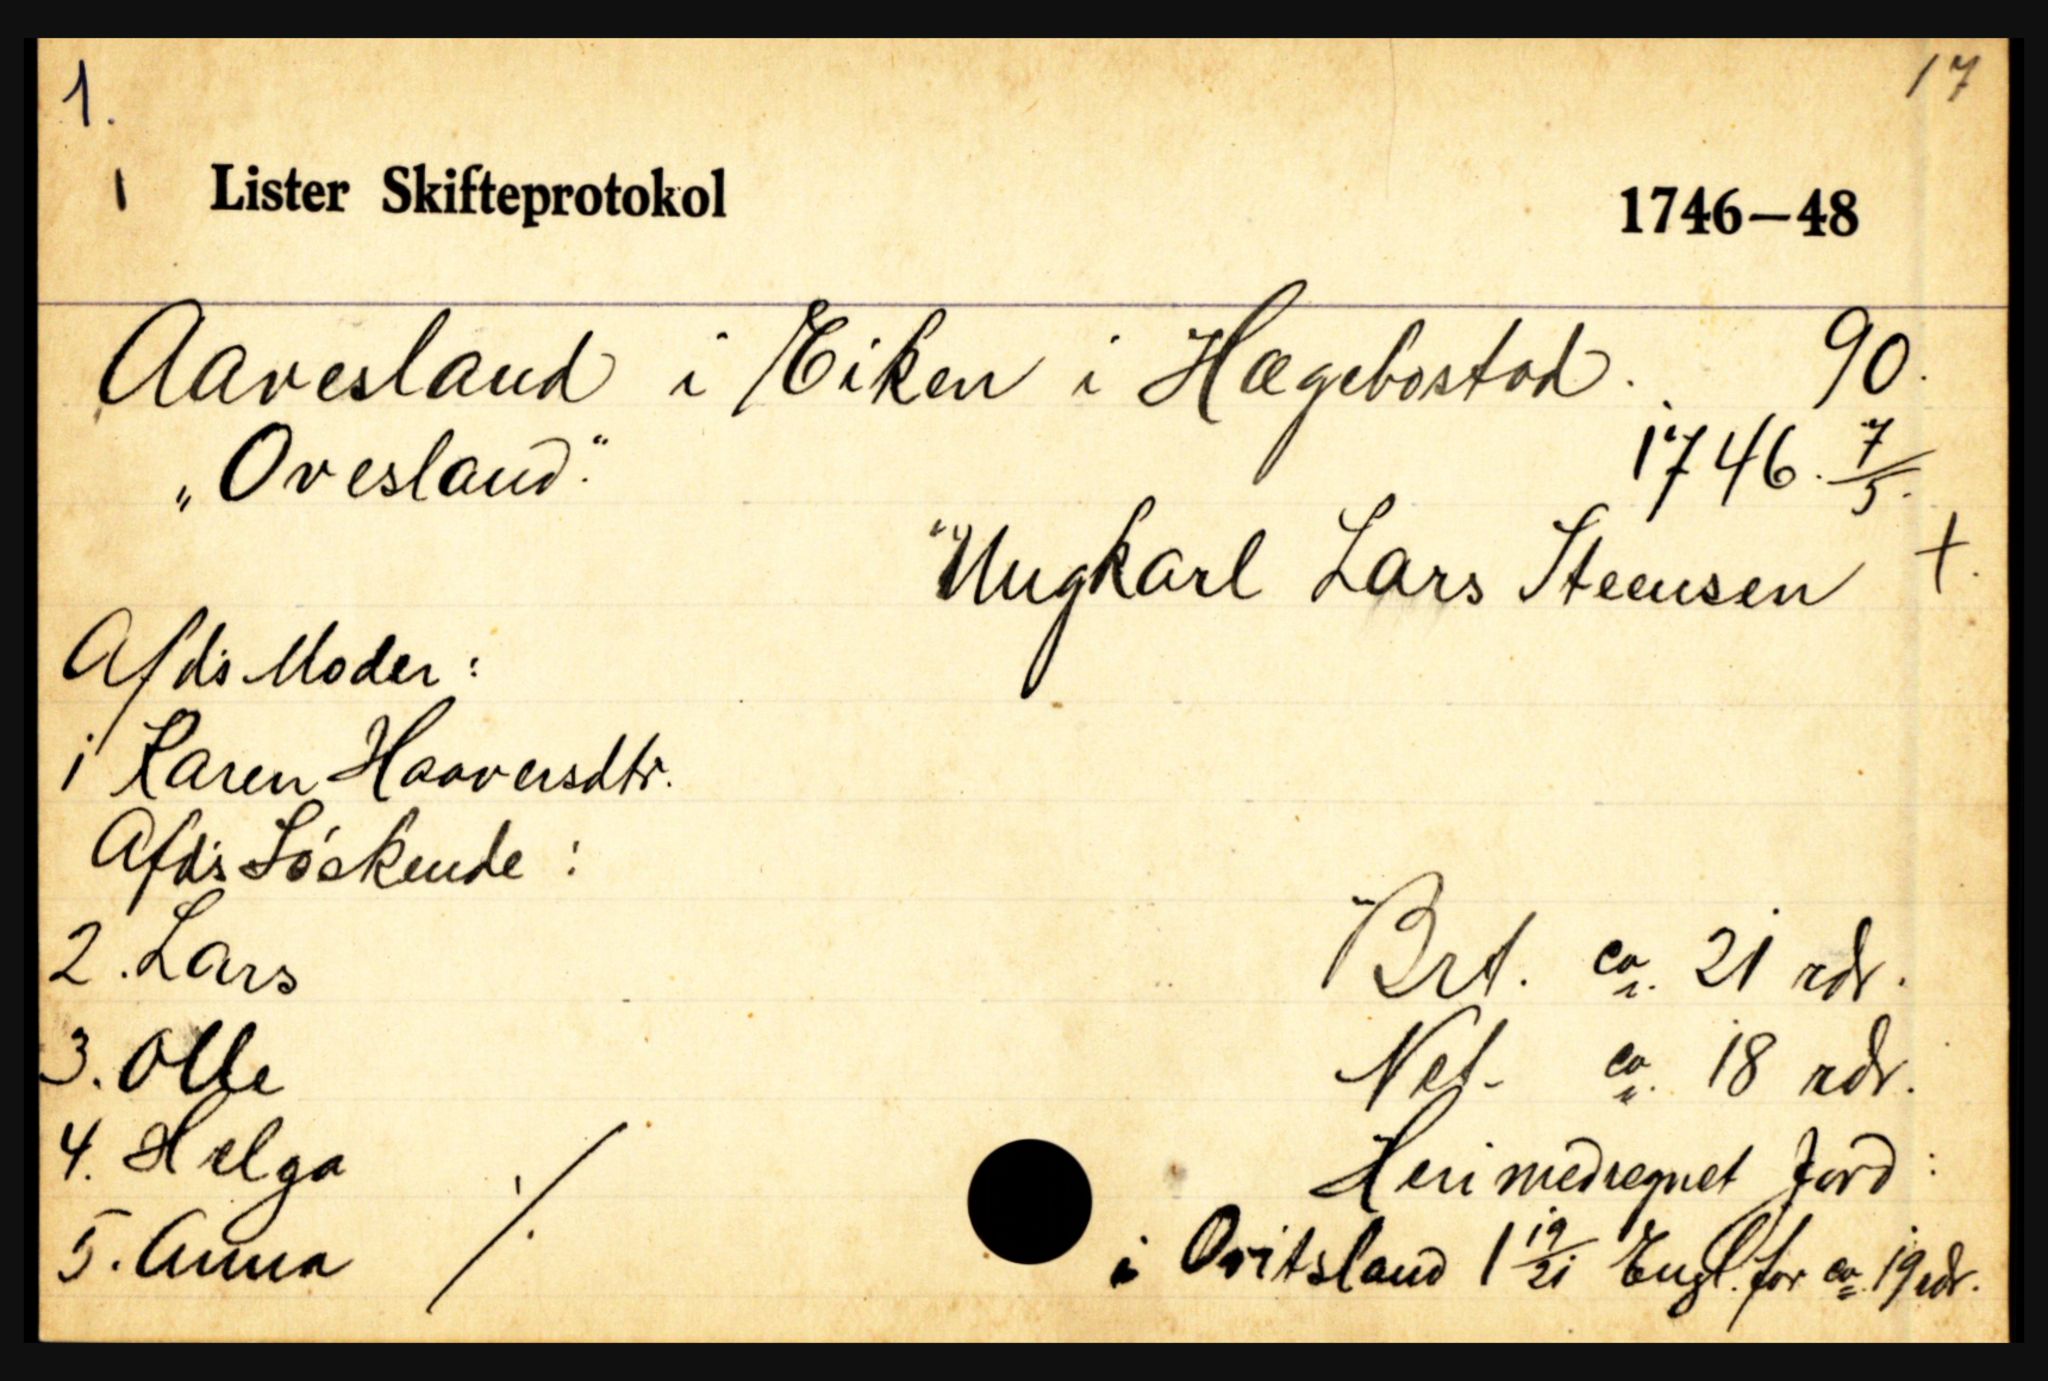 1.
17
1 Lister Skifteprotokol 1746—48
Aavesland i Eiken i Hægebostad. 90.
„Ovesland." 1746. 7/5.
"Ungkarl Lars Steensen +.
Afd's Moder:
1 Karen Haaversdtr.
Afd's Söskende:
2. Lars
Brt. ca. 21 rdr.
3. Olle
Net- ca. 18 rdr.
4. Helga
Heri medregnet Jord:
5. Anna ./.
i Ovitsland 1 19/21 Engl. for ca. 19 rdr.